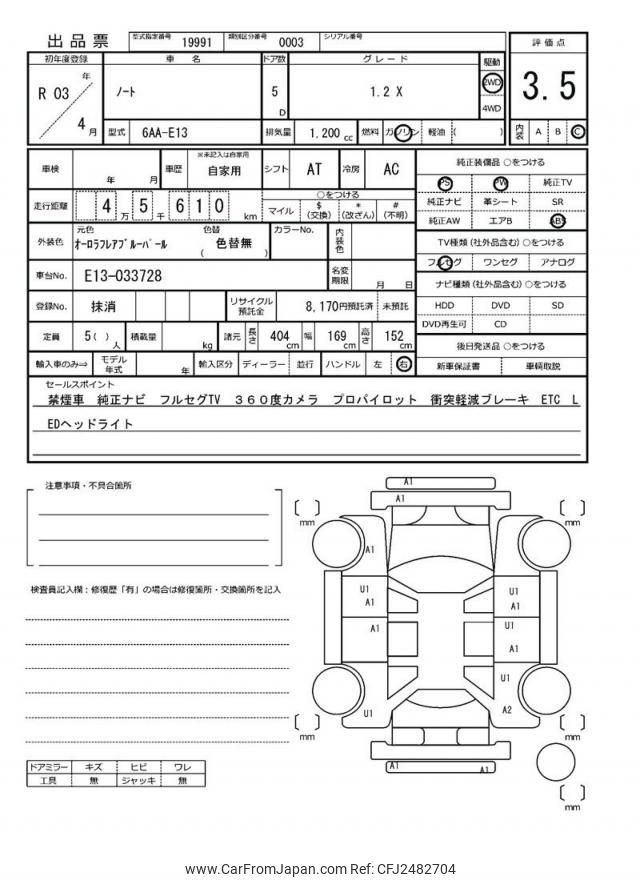 出品票
型式指定番号 19991 類別区分番号 0003 シリアル番号
初年度登録 車名 ドア数 グレード 駆動
R 03 年 4 月
ノート 5 D 1.2 X 2WD 4WD
型式 6AA-E13 排気量 1.200 cc 燃料 ガソリン 軽油 ( )
評価点
3.5
内装 A B C
車検 年 月 車歴 ※未記入は自家用 自家用 シフト AT 冷房 AC
走行距離 4 万 5 千 6 1 0 km
○をつける
マイル $ (交換) * (改ざん) # (不明)
外装色 元色 オーロラフレアブルーパール 色替 ( 色替無 ) カラーNo. 内装色
車台No. E13-033728 名変期限 月 日
登録No. 抹消 リサイクル預託金 8,170円預託済 未預託
定員 5( ) 人 積載量 kg 諸元 長さ 404 cm 幅 169 cm 高さ 152 cm
輸入車のみ⇒ モデル年式 年 輸入区分 ディーラー 並行 ハンドル 左 右
純正装備品 ○をつける
PS PW 純正TV
純正ナビ 革シート SR
純正AW エアB ABS
TV種類 (社外品含む) ○をつける
フルセグ ワンセグ アナログ
ナビ種類 (社外品含む) ○をつける
HDD DVD SD
DVD再生可 CD
後日発送品 ○をつける
新車保証書 車輌取説
セールスポイント
禁煙車 純正ナビ フルセグTV 360度カメラ プロパイロット 衝突軽減ブレーキ ETC L
EDヘッドライト
注意事項・不具合箇所
検査員記入欄：修復歴「有」の場合は修復箇所・交換箇所を記入
ドアミラー キズ ヒビ ワレ
工具 無 ジャッキ 無
A1
A1
mm mm
A1
U1 U1
A1 A1
A1 U1
A1
U1
U1 A2
mm mm
A1 A1
mm
www.CarFromJapan.com Ref: CFJ2482704